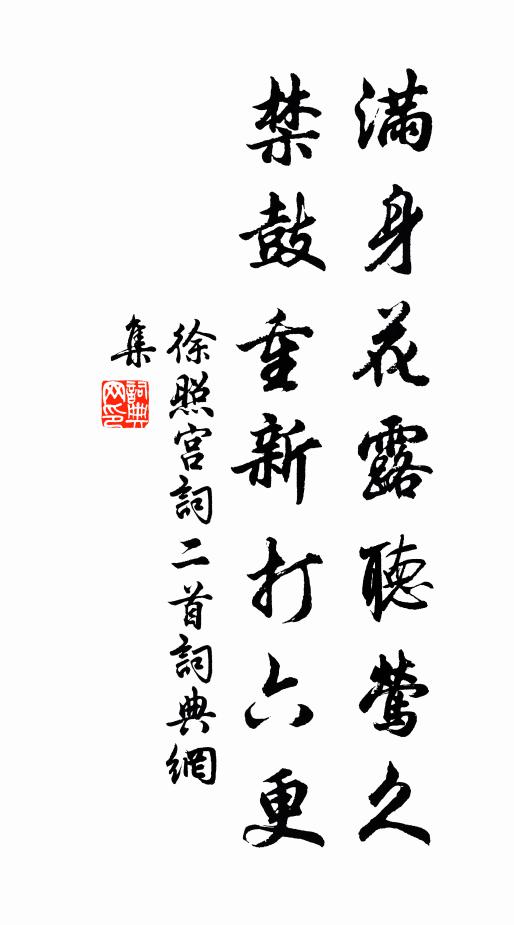 滿身花露聽鶯久
禁鼓重新打六更
徐照宮詞二首詞典網
集
詞典
网印